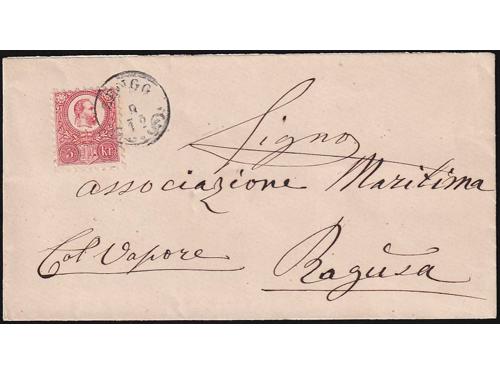 5 Kr
9
12
Signo
associazione Maritima
Col Vapore
Ragusa